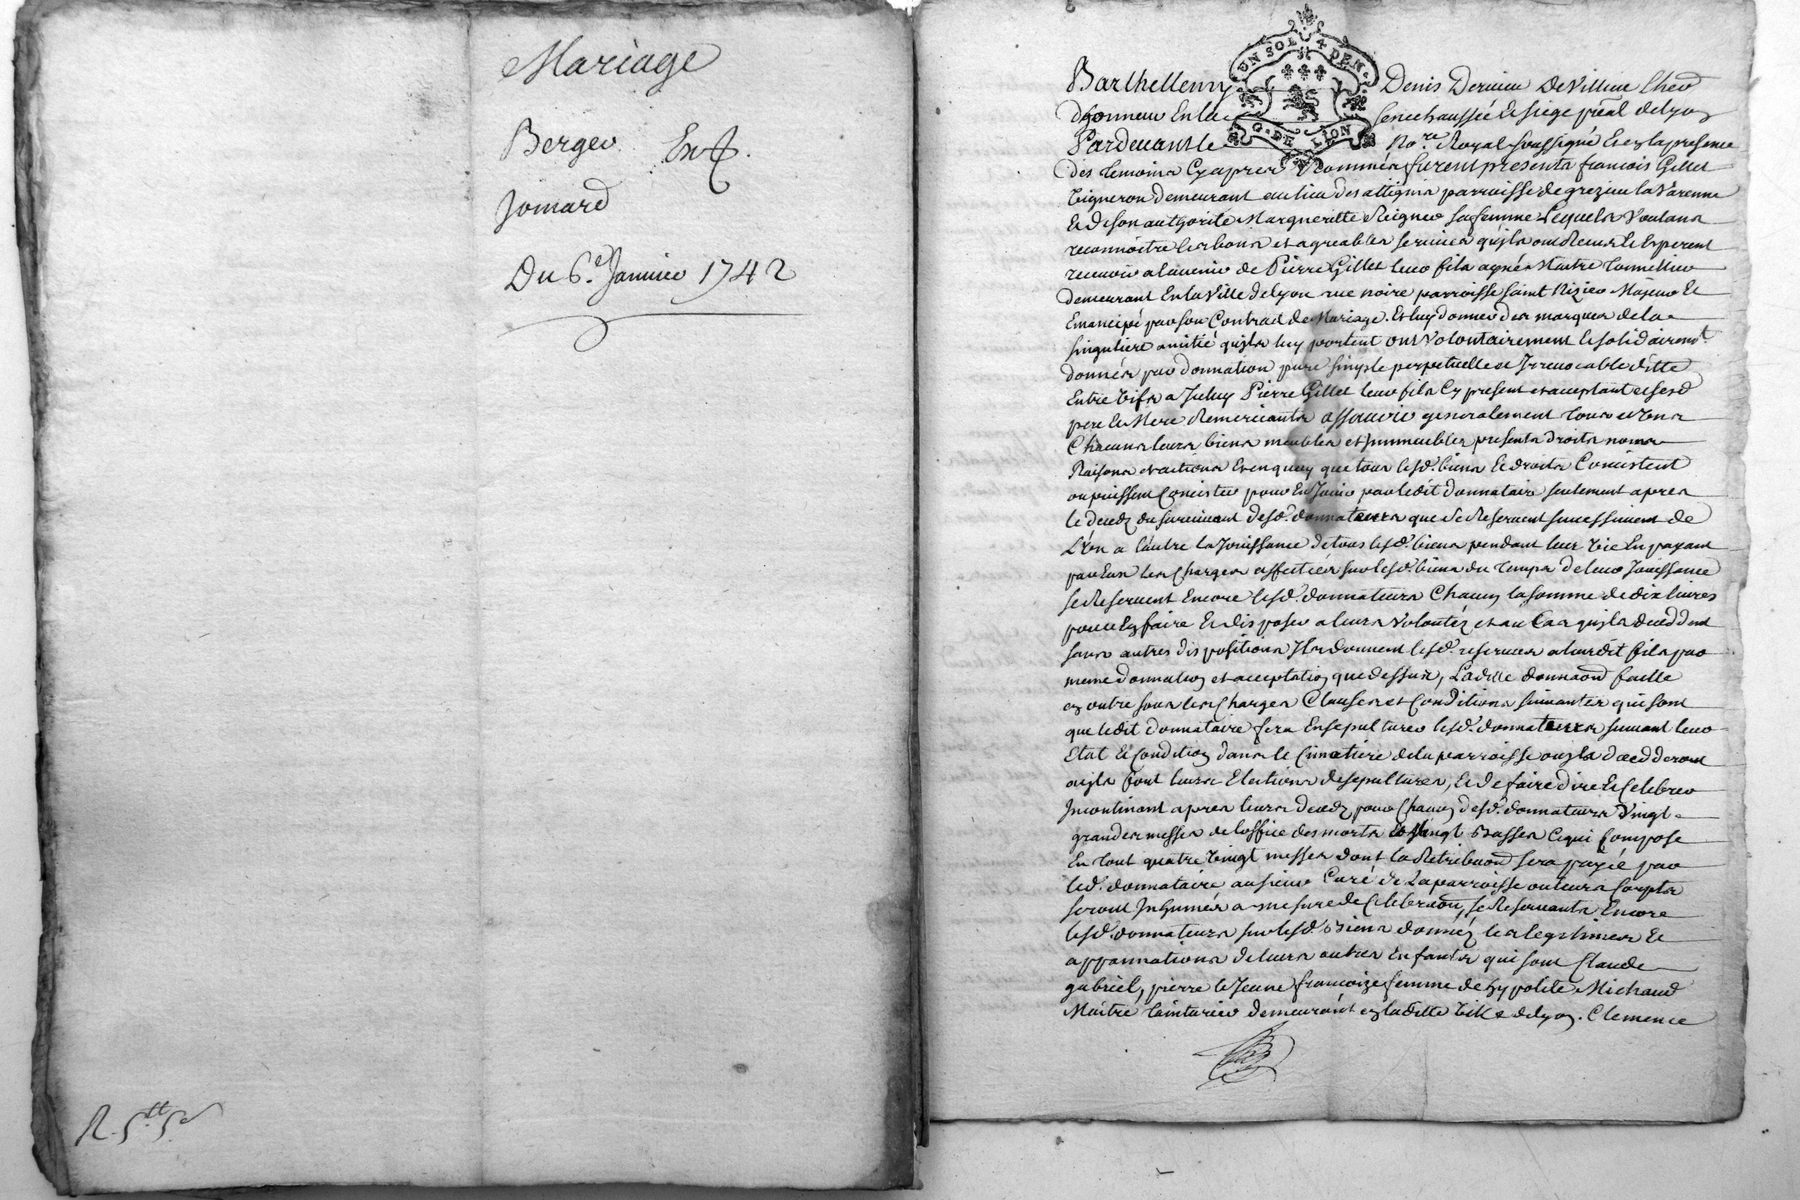 Mariage
Berger Ext.
Jomard
Du 6.e Janvier 1742
R. 5.tt 5.s
UN SOL 4 DEN.
G. DE LION
Barthellemy Denis Dervieu De Villieu Chevr
d'honneur En la senechaussée & siege préal de Lyon
Pardevant le No.re Royal soussigné & en la presence
des temoins Cy apres nommés furent presents francois Gillet
Vigneron demeurant au lieu des attignis parroisse de grezieu la Varenne
& de son authorité Margueritte Reignier sa femme Lesquels Voulans
reconnoistre les bons et agreables services quils ont Receus & Esperent
recevoir a lavenir de Pierre Gillet leur fils agnés Maitre tonnellier
demeurant En la Ville de Lyon rue noire parroisse saint Nizier Majeur Et
Emancipé par son Contrait de Mariage. Et luy donner des marques de la
singuliere amitié quils luy portent ont Volontairement & solidairemt
donnés par donnation pure simple perpetuelle et Irrevocable ditte
Entre Vifs a Iceluy Pierre Gillet leur fils Cy present et aceptant et sesd
pere & Mere Remerciants assavoir generalement tous et Uns
Chacuns leurs biens meubles et Immeubles presents droits noms
Raisons et actions Et en quoy que tous lesd. biens & droits Concistent
ou puissent Concister pour En Jouir par ledit donnataire seulement apres
le deceds du survivant desd. donnateurs que se Reservent successivement de
L'Un a l'autre la Jouissance de tous lesd. biens pendant leur Vie En payant
par Eux les Charges affectées sur lesd. biens du temps de leur Jouissance
se Reservent Encore lesd. donnateurs Chacun la somme de dix livres
pour En faire & disposer a leurs Volontés et au Cas quils deceddent
sans autres dispositions Ils donnent lesd. reserves a leurdit fils par
meme donnation et acceptation que dessus, Laditte donnaon faitte
en outre sous les Charges Clauses et Conditions suivantes qui sont
que ledit donnataire fera Ensepulturer lesd. donnateurs suivant leur
Etat & Condition dans le Cimetiere de la parroisse ou ils decedderont
ou ils font leurs Elections de sepultures, & de faire dire & Celebrer
Incontinant apres leurs deceds pour Chacun desd. donnateurs Vingt
grandes messes de l'office des morts & Vingt Basses Ce qui Compose
En tout quatre Vingt messes dont la Retribuaon sera payée par
led. donnataire au sieur Curé de La parroisse ou leurs Corps
seront Inhumés a mesure de Celebraon, se Reservants Encore
lesd. donnateurs sur lesd. Biens donnés les legitimes Et
appannations de leurs autres Enfants qui sont Claude
gabriel, pierre le Jeune francoize femme de hypolite Michaud
Maitre teinturier demeurant en laditte Ville de Lyon. Clemence